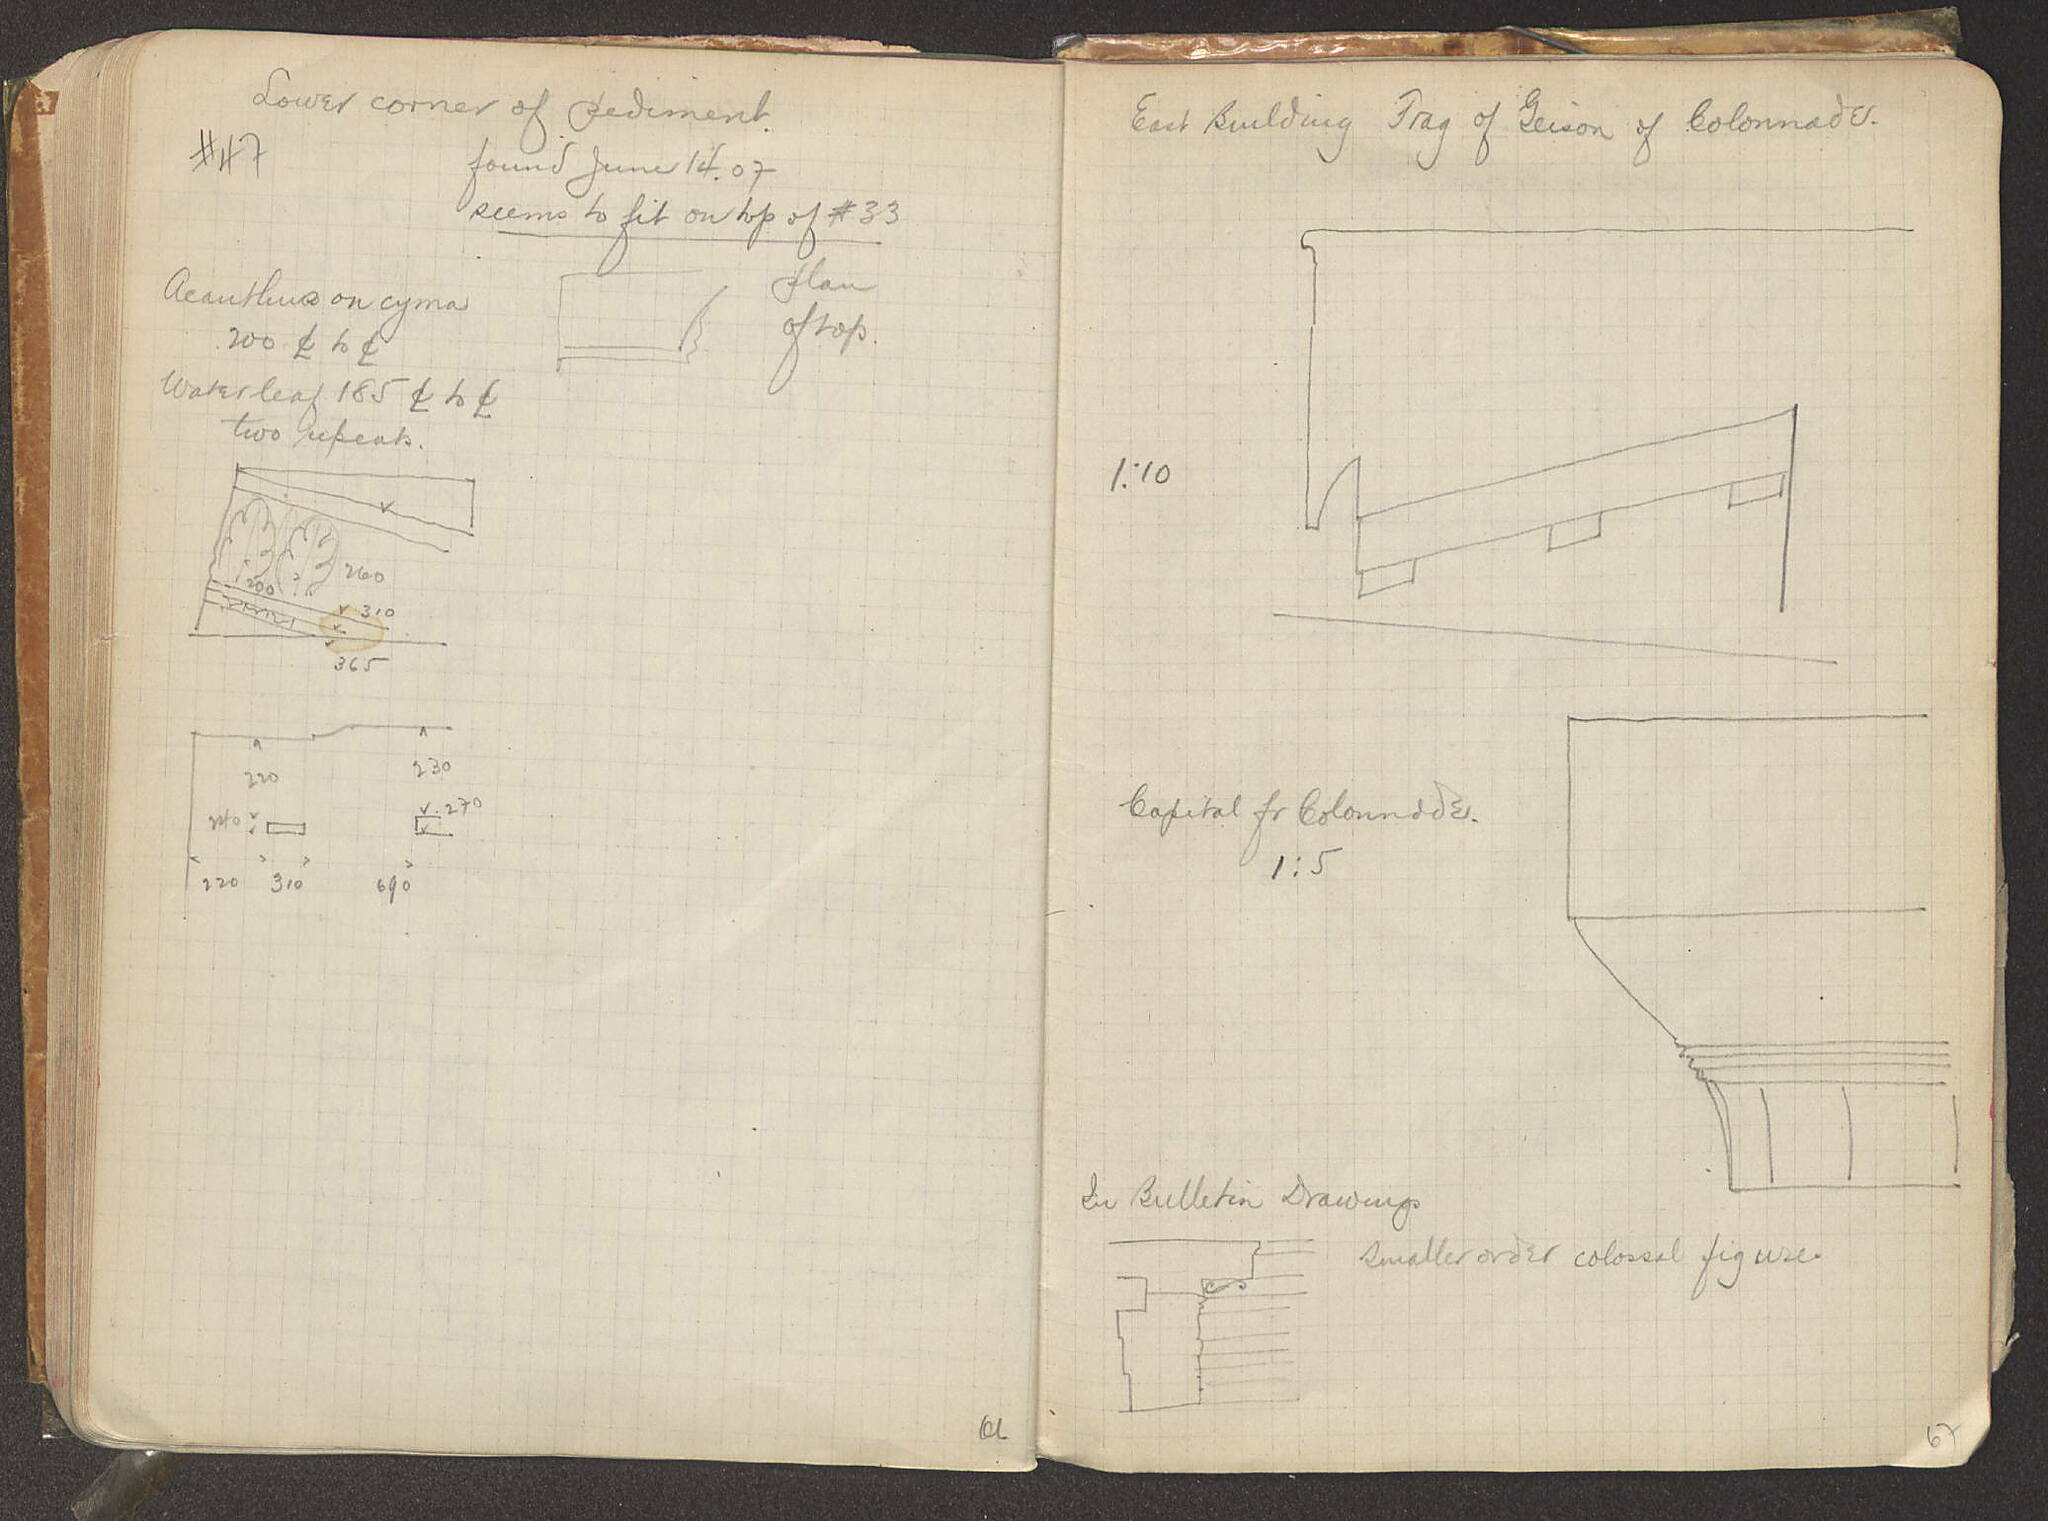 Lower corner of pediment.
#47
found June 14. 07
seems to fit on top of #33
Acanthus on cyma
200 ℄ to ℄
Water leaf 185 ℄ to ℄
two repeats.
plan
of top.
260
200
310
365
220
230
240
270
220 310 690
East Building Frag of Geison of Colonnade.
1:10
Capital fr Colonnade.
1:5
In Bulletin Drawings
Smaller order colossal figure.
67